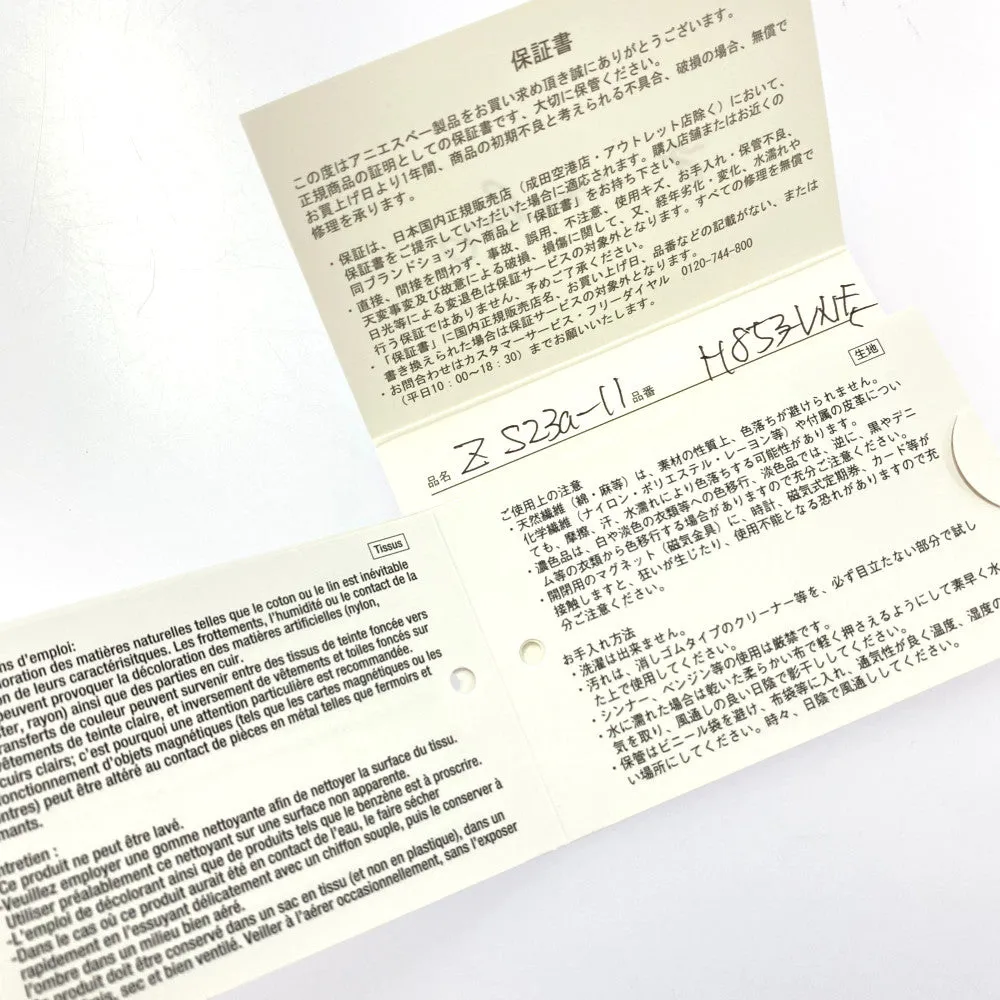 保証書
この度はアニエスベー製品をお買い求め頂き誠にありがとうございます。
正規商品の証明としての保証書です、大切に保管ください。
お買上げ日より1年間、商品の初期不良と考えられる不具合、破損の場合、無償で
修理を承ります。
・保証は、日本国内正規販売店（成田空港店・アウトレット店除く）において、
保証書をご提示していただいた場合に適応されます。購入店舗またはお近くの
同ブランドショップへ商品と「保証書」をお持ち下さい。
・直接、間接を問わず、事故、誤用、不注意、使用キズ、お手入れ・保管不良、
天災事変及び故意による破損、損傷に関して、又、経年劣化・変化、水濡れや
日光等による変退色は保証サービスの対象外となります。すべての修理を無償で
行う保証ではありません、予めご了承ください。
・「保証書」に国内正規販売店名、お買い上げ日、品番などの記載がない、または
書き換えられた場合は保証サービスの対象外となります。
・お問合わせはカスタマーサービス・フリーダイヤル 0120-744-800
（平日10：00～18：30）までお願いいたします。
品名 Z S23a-11 品番 H853-VNE
生地
ご使用上の注意
・天然繊維（綿・麻等）は、素材の性質上、色落ちが避けられません。
化学繊維（ナイロン・ポリエステル・レーヨン等）や付属の皮革につい
ても、摩擦、汗、水濡れにより色落ちする可能性があります。
・濃色品は、白や淡色の衣類等への色移行、淡色品では、逆に、黒やデニ
ム等の衣類から色移行する場合がありますので充分ご注意ください。
・開閉用のマグネット（磁気金具）に、時計、磁気式定期券、カード等が
接触しますと、狂いが生じたり、使用不能となる恐れがありますので充
分ご注意ください。
お手入れ方法
・洗濯は出来ません。
・汚れは、消しゴムタイプのクリーナー等を、必ず目立たない部分で試し
た上で使用してください。
・シンナー、ベンジン等の使用は厳禁です。
・水に濡れた場合は乾いた柔らかい布で軽く押さえるようにして素早く水
気を取り、風通しの良い日陰で影干ししてください。
・保管はビニール袋を避け、布袋等に入れ、通気性が良く温度、湿度の
い場所にしてください。時々、日陰で風通しして
Tissus
ns d'emploi:
oration des matières naturelles telles que le coton ou le lin est inévitable
n de leurs caractérisitques. Les frottements, l'humidité ou le contact de la
peuvent provoquer la décoloration des matières artificielles (nylon,
ter, rayon) ainsi que des parties en cuir.
ransferts de couleur peuvent survenir entre des tissus de teinte foncée vers
vêtements de teinte claire, et inversement de vêtements et toiles foncés sur
cuirs clairs; c'est pourquoi une attention particulière est recommandée.
onctionnement d'objets magnétiques (tels que les cartes magnétiques ou les
ntres) peut être altéré au contact de pièces en métal telles que fermoirs et
mants.
ntretien :
Ce produit ne peut être lavé.
-Veuillez employer une gomme nettoyante afin de nettoyer la surface du tissu.
Utiliser préalablement ce nettoyant sur une surface non apparente.
-L'emploi de décolorant ainsi que de produits tels que le benzène est à proscrire.
-Dans le cas où ce produit aurait été en contact de l'eau, le faire sécher
rapidement en l'essuyant délicatement avec un chiffon souple, puis le conserver à
l'ombre dans un milieu bien aéré.
produit doit être conservé dans un sac en tissu (et non en plastique), dans un
is, sec et bien ventilé. Veiller à l'aérer occasionnellement, sans l'exposer